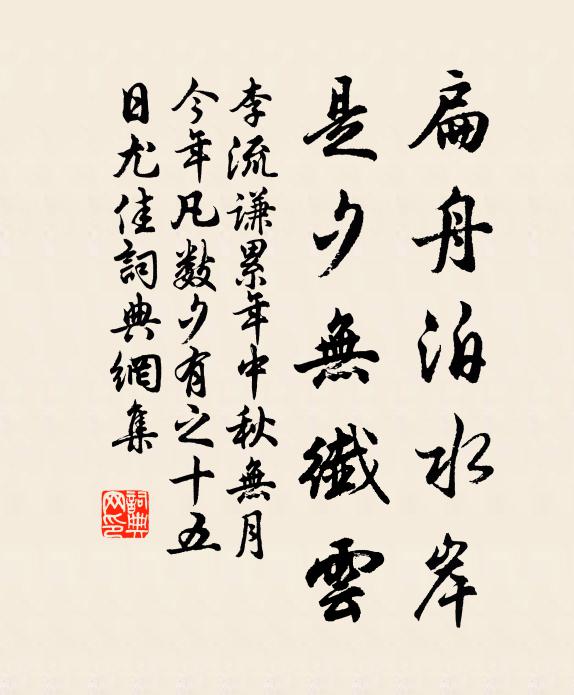 扁舟泊水岸
是夕無纖雲
李流謙累年中秋無月
今年凡數夕有之十五
日尤佳詞典網集
詞典網印